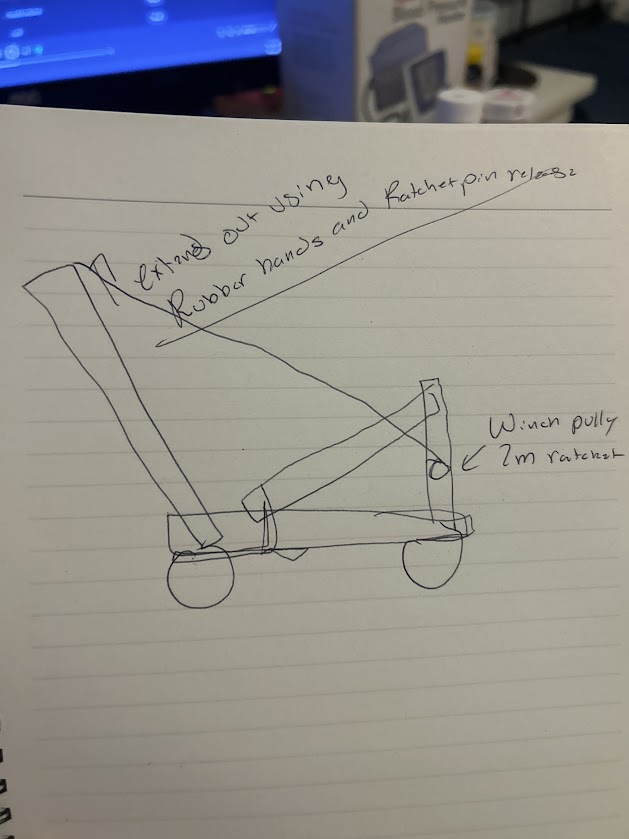 extend out using
Rubber bands and Ratchet pin release
Winch pully
2m ratchet